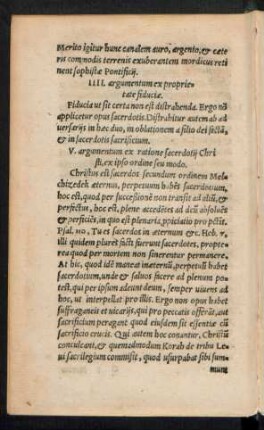 Merito igitur hunc eandem auro, argento, & cæte
ris commodis terrenis exuberantem mordicus reti
nent sophistæ Pontificij.
IIII. argumentum ex proprie-
tate fiduciæ.
Fiducia ut sit certa non est distrahenda. Ergo nõ
applicetur opus sacerdotis. Distrahitur autem ab ad
uersarijs in hæc duo, in oblationem a filio dei factã,
& in sacerdotis sacrificium.
V. argumentum ex ratione sacerdotij Chri
sti, ex ipso ordine seu modo.
Christus est sacerdos secundum ordinem Mel-
chizedech æternum, perpetuum habẽs sacerdotium,
hoc est, quod per successionẽ non transit ad aliũ, &
perfectus, hoc est, plene accedẽtes ad deũ absoluẽs
& perficiẽs, in quo est plenaria, ꝓpiciatio pro pctis.
Psal. 110, Tu es sacerdos in æternum &c. Heb. 7.
illi quidem plures facti fuerunt sacerdotes, proptẽ-
rea quod per mortem non sinerentur permanere.
At hic, quod idẽ maneat inæternũ, perpetuũ habet
sacerdotium, unde & saluos facere ad plenum po-
test, qui per ipsum adeunt deum, semper uiuens ad
hoc, ut interpellat pro illis. Ergo non opus habet
suffraganeis et uicarijs, qui pro peccatis offerãt, aut
sacrificium peragant quod eiusdem sit essentiæ cũ
sacrificio crucis. Qui autem hoc conantur, Christũ
conculcant, & quemadmodum Korah de tribu Le
ui sacrilegium commisit, quod usurpabat sibi sum-
mum